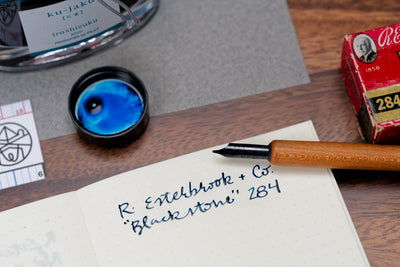 ku-jaku
iroshizuku
R. Esterbrook + Co.
"Blackstone" 284
RE
1858
284